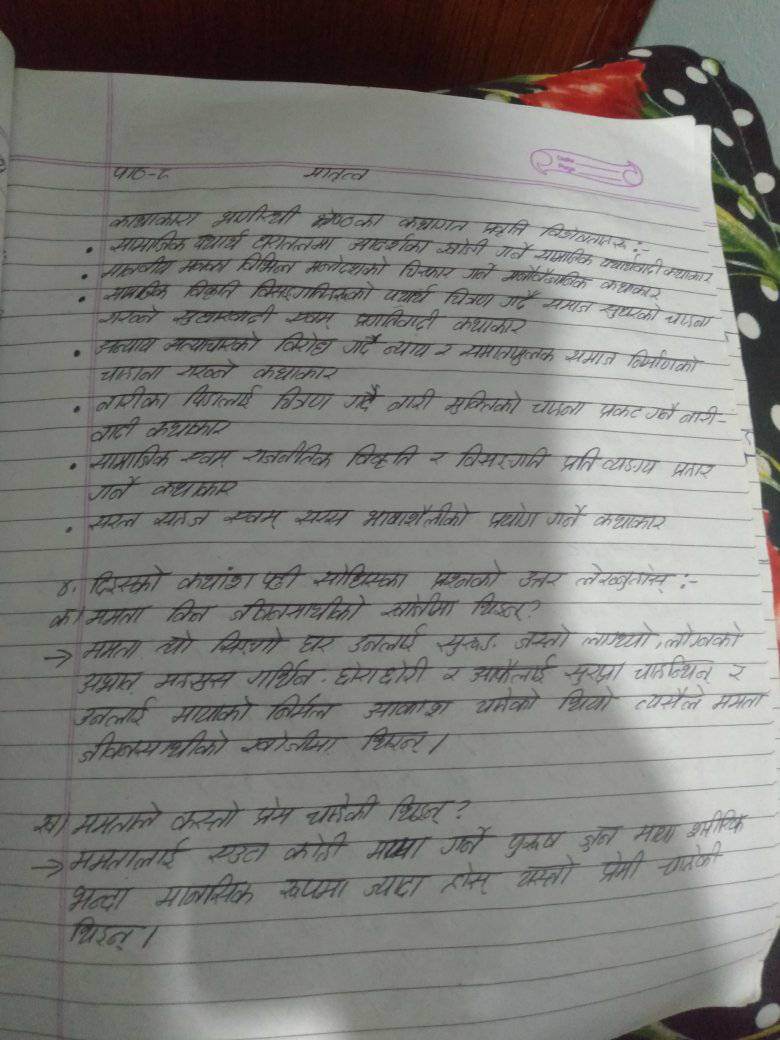 पाठ-८ मातृत्व
कथाकारा भागिरथी श्रेष्ठका कथागत प्रवृति विशेषताहरू :-
• सामाजिक यथार्थ धरातलमा आदर्शका खोजी गर्ने सामाजिक यथार्थवादी कथाकार
• मानवीय मनका विभिन्न मनोदशाको चिरफार गर्ने मनोवैज्ञानिक कथाकार
• सामाजिक विकृति विसङ्गतिहरूको यथार्थ चित्रण गर्दै समाज सुधारको चाहना
राख्ने सुधारवादी एवम् प्रगतिवादी कथाकार
• अन्याय अत्याचारको विरोध गर्दै न्याय र समतामुलक समाज निर्माणको
चाहाना राख्ने कथाकार
• नारीका पिडालाई चित्रण गर्दै नारी मुक्तिको चाहना प्रकट गर्ने नारी-
वादी कथाकार
• सामाजिक एवम् राजनीतिक विकृति र विसङ्गति प्रति व्यङग्य प्रहार
गर्ने कथाकार
• सरल सहज एवम् सरस भाषाशैलीको प्रयोग गर्ने कथाकार
४. दिइएको कथांश पढी सोधिएका प्रश्नको उत्तर लेख्नुहोस् :-
क) ममता किन जीवनसाथीको खोजीमा थिइन्?
→ ममता त्यो सिङ्गो घर उनलाई जस्तो लाग्थ्यो, लोग्नेको
अभाव महसुस गर्थिन. छोराछोरी र आफैलाई सुरक्षा चाहन्थिन् र
उनलाई मायाको निर्मल आकाश चाहेको थियो त्यसैले ममता
जीवनसाथीको खोजीमा थिइन्।
ख) ममताले कस्तो प्रेम चाहेकी थिइन्?
→ ममतालाई एउटा कोही माया गर्ने पुरुष हुन तथा शारीरिक
भन्दा मानसिक रूपमा ज्यादा होस् त्यस्तो प्रेमी चाहेकी
थिइन्।